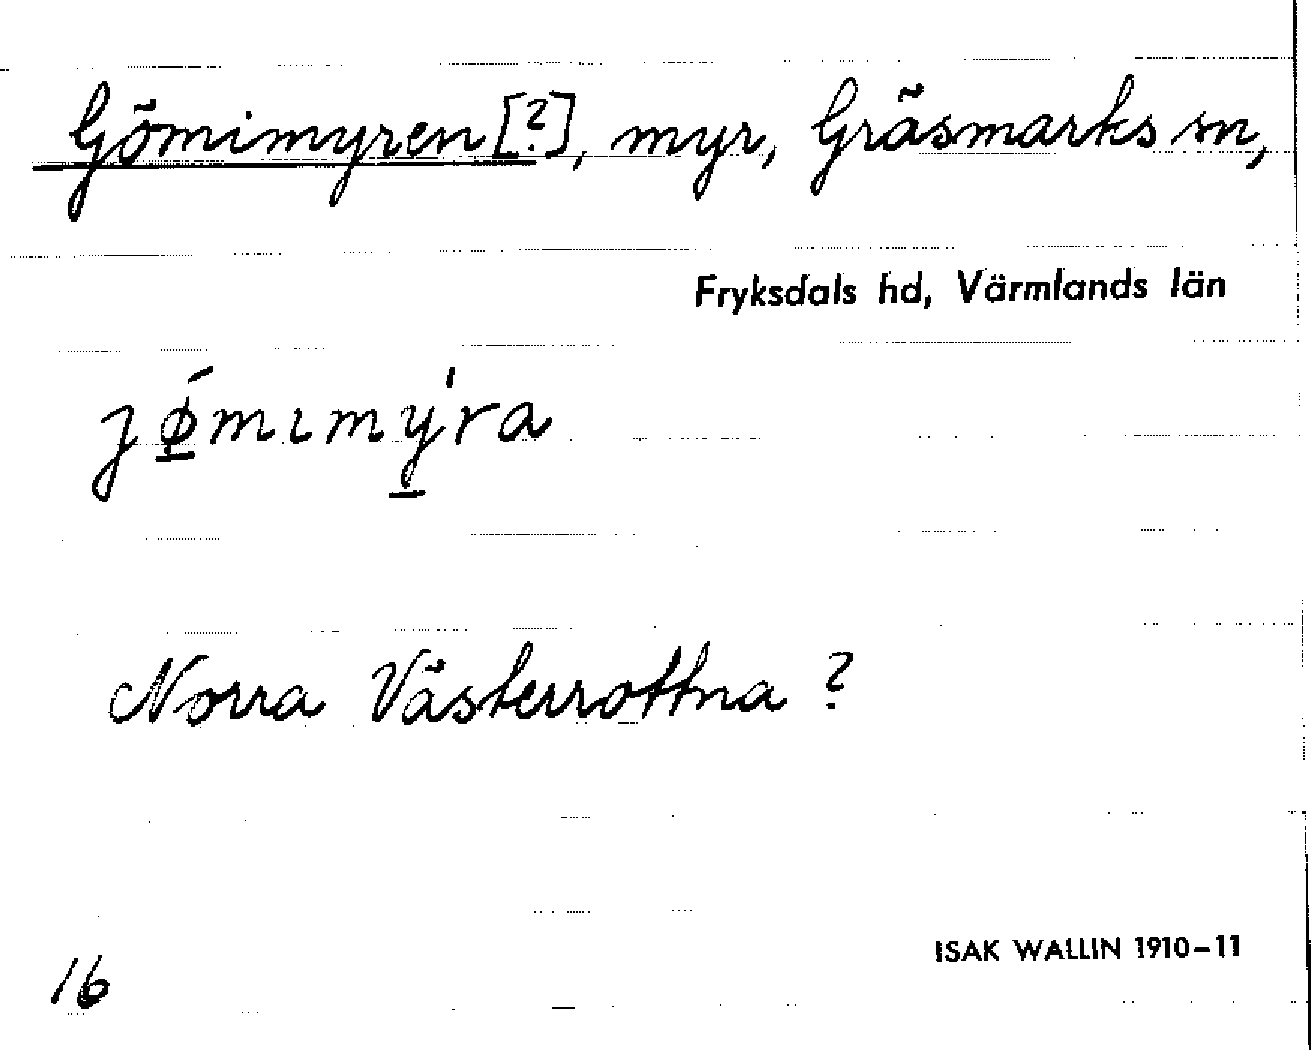 Gömimyren [?], myr, Gräsmarks sn,
Fryksdals hd, Värmlands län
jǿ̲mɩmy̲̍ra
Norra Västerrottna ?
16
ISAK WALLIN 1910–11